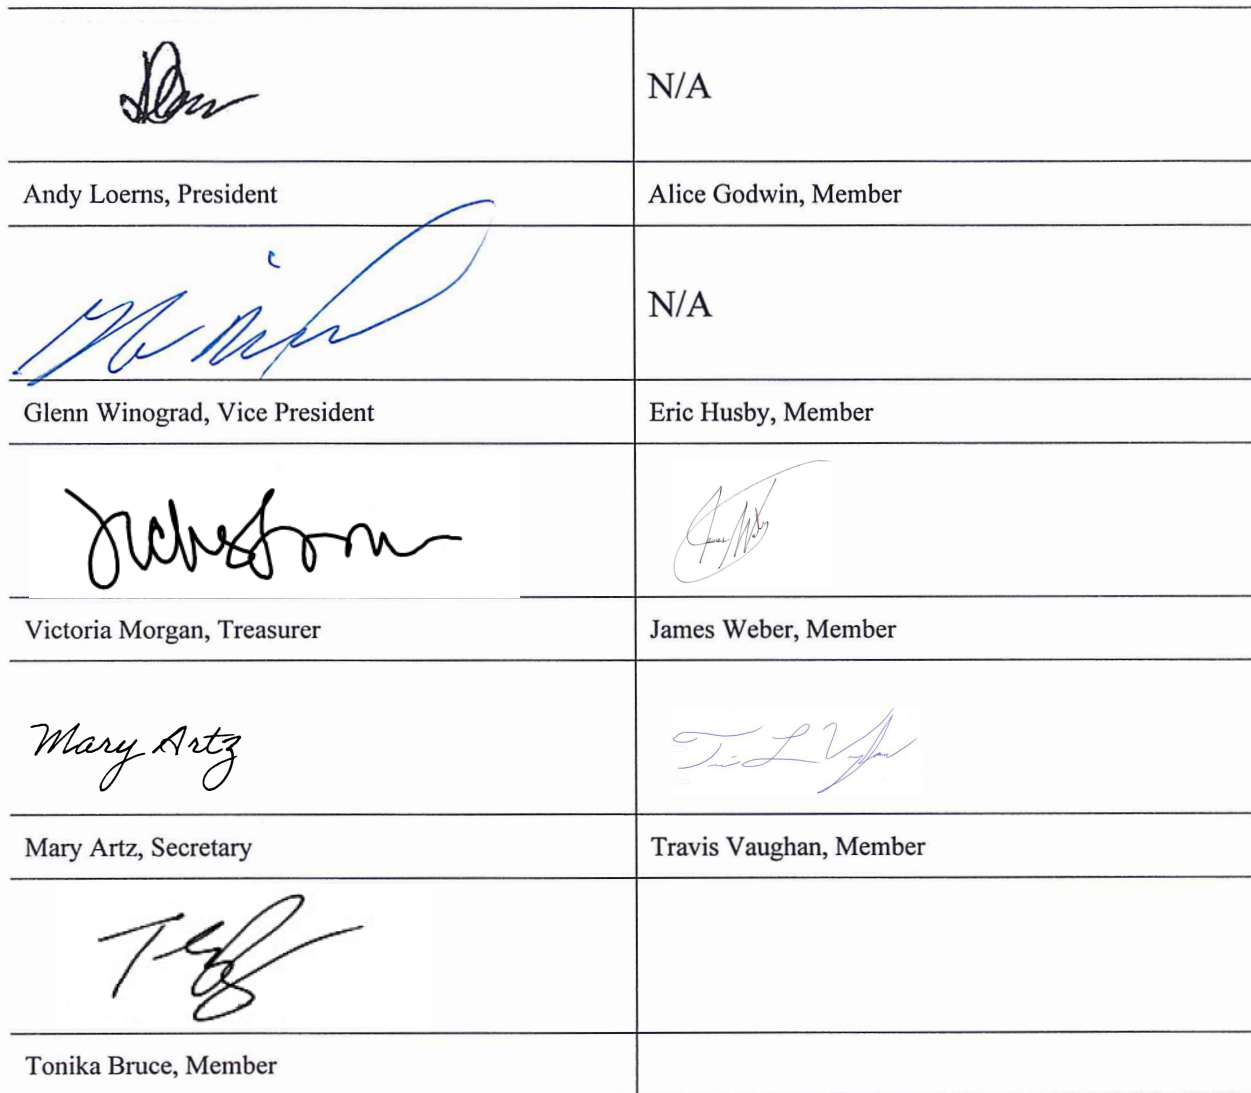 N/A
Andy Loerns, President
Alice Godwin, Member
N/A
Glenn Winograd, Vice President
Eric Husby, Member
Victoria Morgan, Treasurer
James Weber, Member
Mary Artz
Mary Artz, Secretary
Travis Vaughan, Member
Tonika Bruce, Member